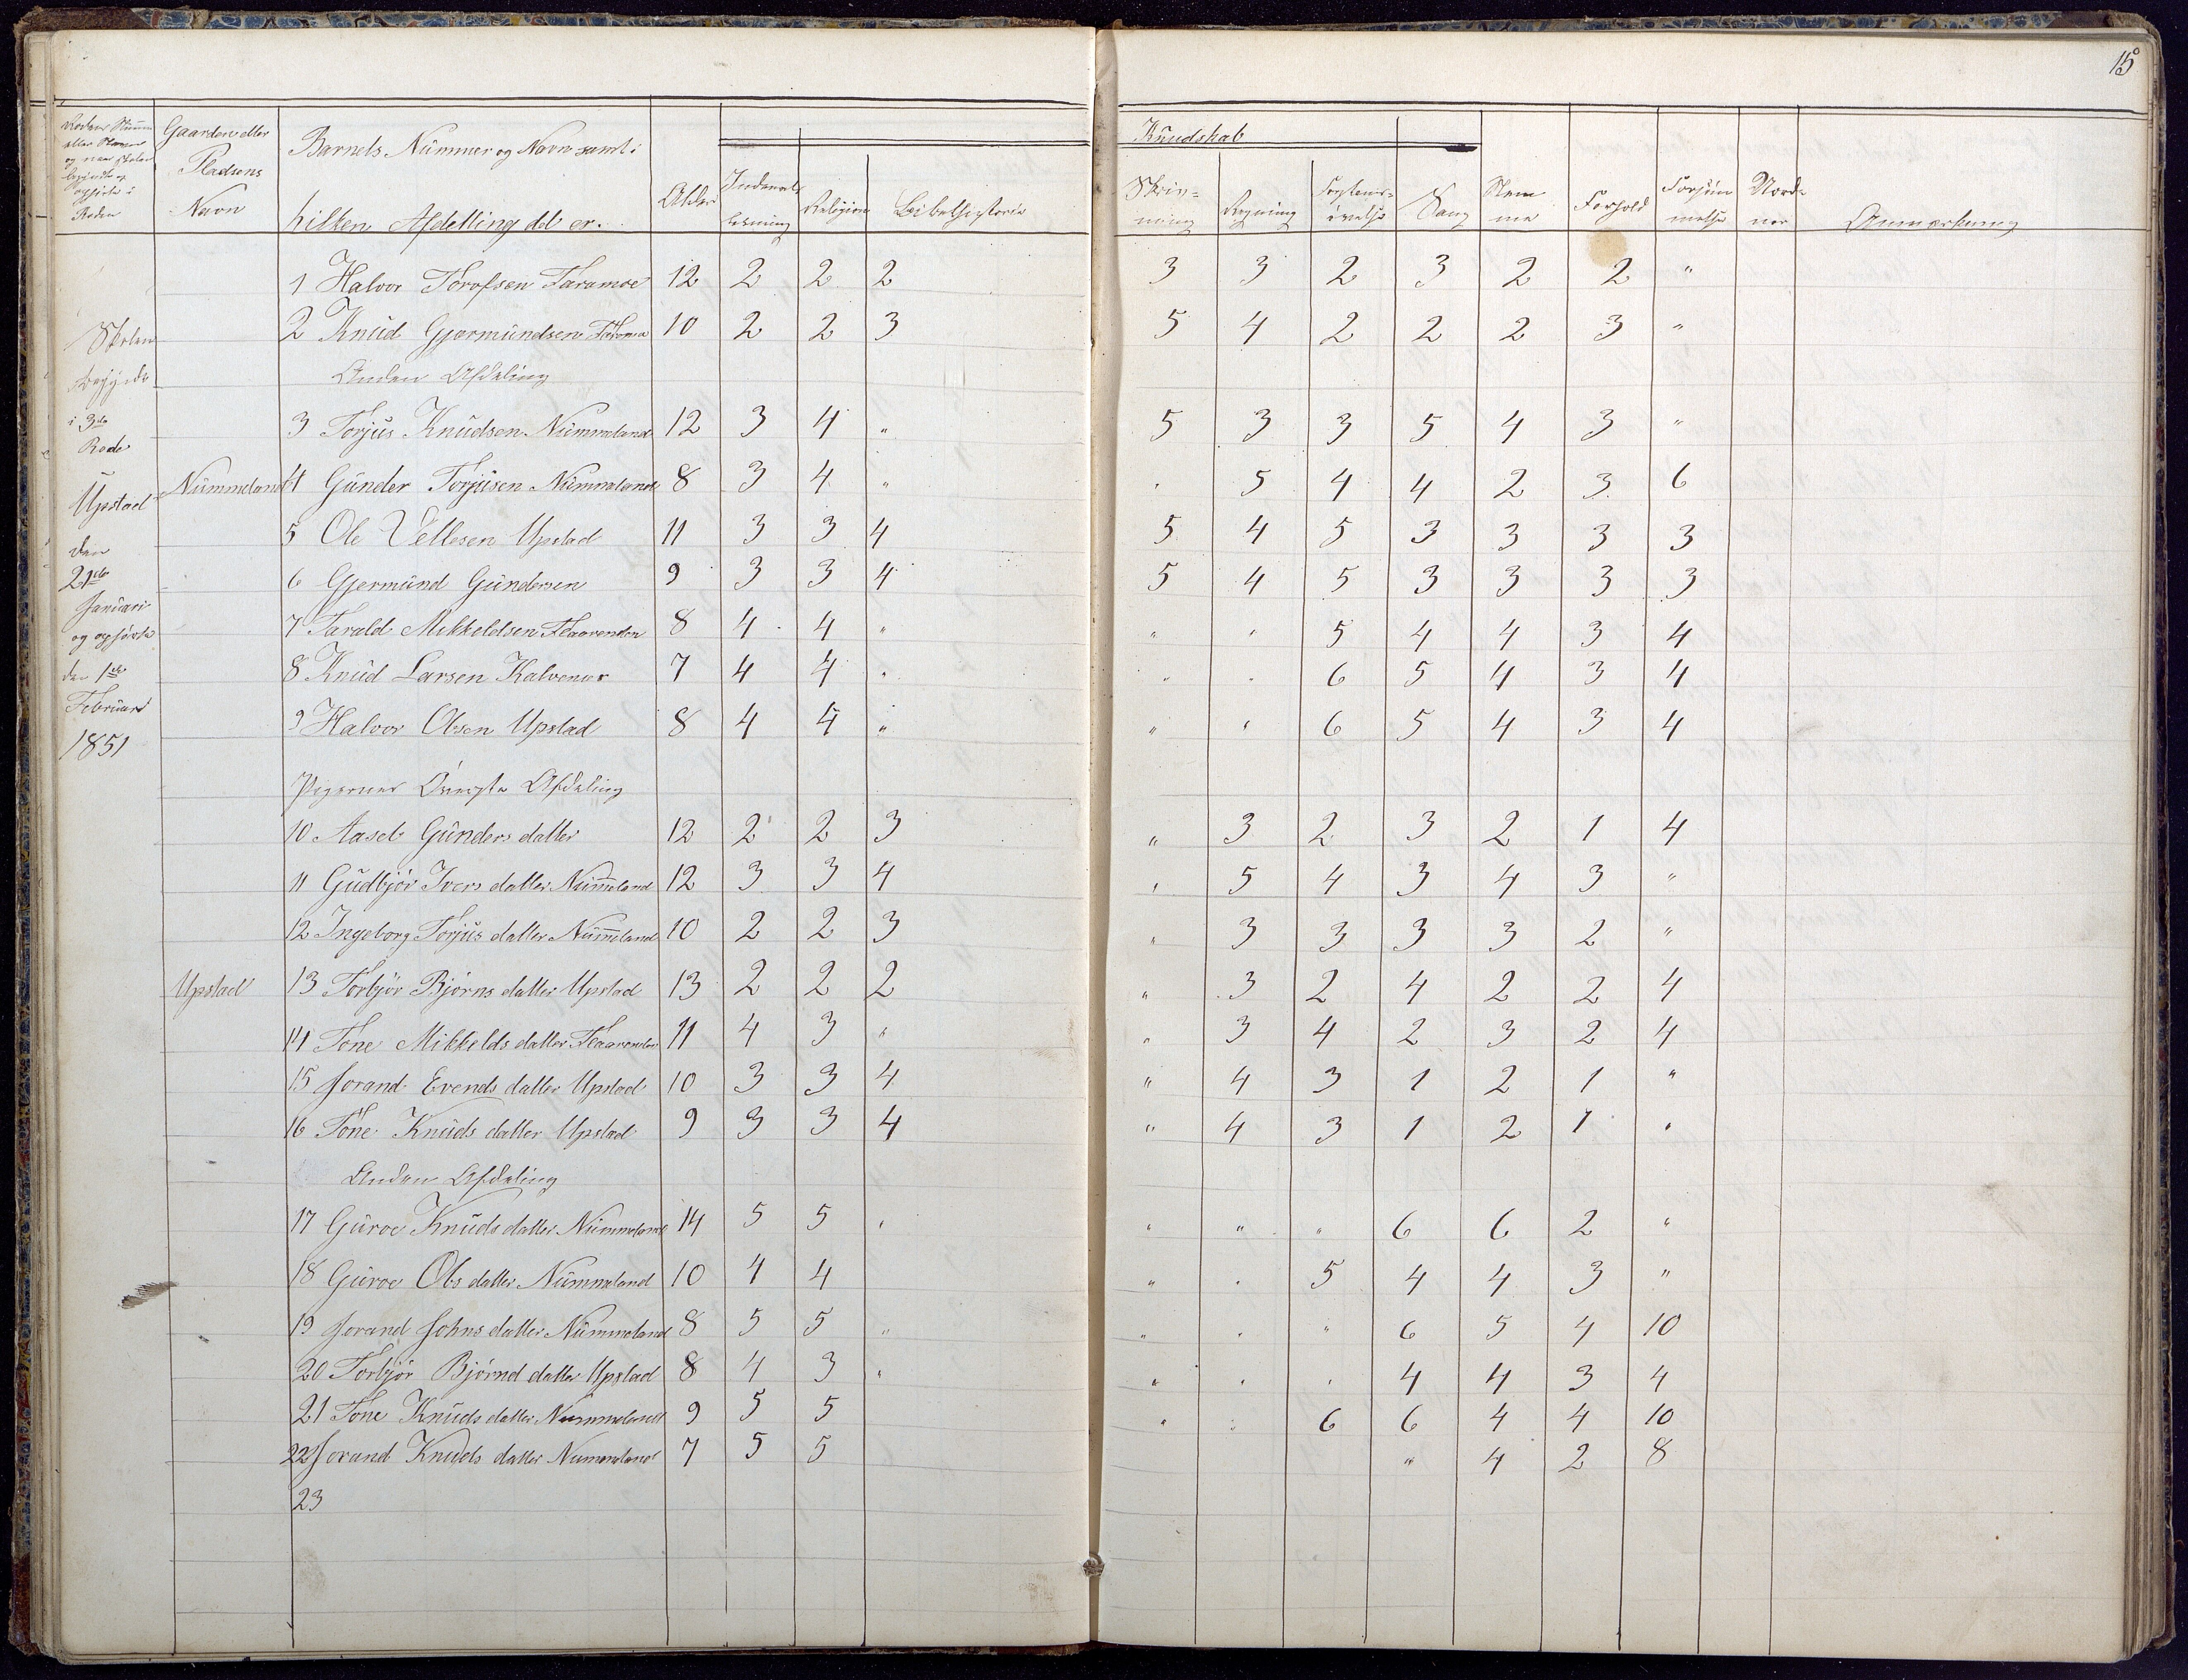 15
Rodens Numer
eller Navn
og naar Skolen
begyndte og
ophørte i
Roden
Gaardens eller
Pladsens
Navn
Barnets Nummer og Navn samt i
hilken Afdelling det er.
Alder
Indenads
læsning
Religion
Bibelhistorie
Kundskab
Skriv-
ning
Regning
Forstands-
øvelse
Sang
Nem
me
Forhold
Forsøm
melse
Norde
ner
Anmærkning
Skolen
begyndte
i 3die
Rode
Upstad
den
21de
Januari
og ophørte
den 1ste
Februari
1851
1 Halvor Torofsen Faramoe 12 2 2 2 3 3 2 3 2 2 "
2 Knud Gjermundsen 10 2 2 3 5 4 2 2 2 3 "
Anden Afdeling
3 Torjus Knudsen Nummeland 12 3 4 " 5 3 3 5 4 3 "
Nummeland 4 Gunder Torjusen Nummeland 8 3 4 " " 5 4 4 2 3 6
5 Ole Vellesen Upstad 11 3 3 4 5 4 5 3 3 3 3
6 Gjermund Gundersen 9 3 3 4 5 4 5 3 3 3 3
7 Tarald Mikkeldsen Flaarenden 8 4 4 " " " 5 4 4 3 4
8 Knud Larsen Kalvenes 7 4 4 " " " 6 5 4 3 4
9 Halvor Olsen Upstad 8 4 4 " " " 6 5 4 3 4
Pigernes Øverste Afdeling
10 Aaseb Gunders datter 12 2 2 3 " 3 2 3 2 1 4
11 Gudbjør Ivers datter Num̅eland 12 3 3 4 " 5 4 3 4 3 "
12 Ingeborg Torjus datter Num̅eland 10 2 2 3 " 3 3 3 3 2 "
Upstad 13 Torbjør Bjørns datter Upstad 13 2 2 2 " 3 2 4 2 2 4
14 Tone Mikkelds datter Flaarenden 11 4 3 " " 3 4 2 3 2 4
15 Jorand Evends datter Upstad 10 3 3 4 " 4 3 1 2 1 "
16 Tone Knuds datter Upstad 9 3 3 4 " 4 3 1 2 1 "
Anden Afdeling
17 Guroe Knuds datter Nummeland 14 5 5 " " " " 6 6 2 "
18 Guroe Ols datter Nummeland 10 4 4 " " 5 4 4 3 "
19 Jorand Johns datter Nummeland 8 5 5 " " " " 6 5 4 10
20 Torbjør Bjørnd datter Upstad 8 4 3 " " " " 4 4 3 4
21 Tone Knuds datter Nummeland 9 5 5 " " 6 6 4 4 10
22 Jorand Knuds datter Nummeland 7 5 5 " 4 2 8
23